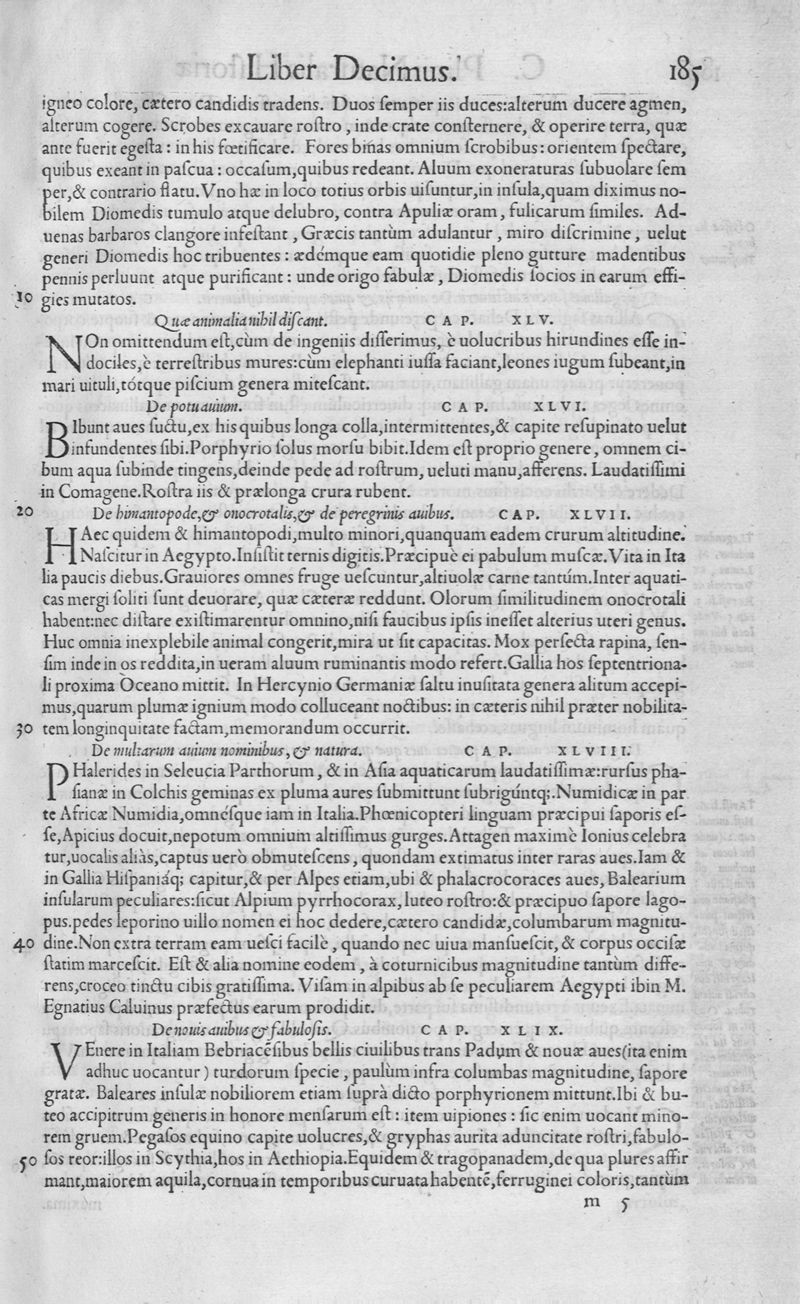 Liber Decimus. 185
igneo colore, cætero candidis tradens. Duos ſemper iis duces:alterum ducere agmen,
alterum cogere. Scrobes excauare roſtro, inde crate conſternere, & operire terra, quæ
ante fuerit egeſta: in his fœtificare. Fores binas omnium ſcrobibus: orientem ſpectare,
quibus exeant in paſcua: occaſum,quibus redeant. Aluum exoneraturas ſubuolare ſem
per,& contrario flatu.Vno hæ in loco totius orbis uiſuntur,in inſula,quam diximus no-
bilem Diomedis tumulo atque delubro, contra Apuliæ oram, fulicarum ſimiles. Ad-
uenas barbaros clangore infeſtant, Græcis tantùm adulantur, miro diſcrimine, uelut
generi Diomedis hoc tribuentes: ædémque eam quotidie pleno gutture madentibus
pennis perluunt atque purificant: unde origo fabulæ, Diomedis ſocios in earum effi-
10 gies mutatos.
Quæ animalia nihil diſcant. CAP. XLV.
NOn omittendum eſt,cùm de ingeniis diſſerimus, è uolucribus hirundines eſſe in-
dociles,è terreſtribus mures:cùm elephanti iuſſa faciant,leones iugum ſubeant,in
mari uituli,tótque piſcium genera miteſcant.
De potu auium. CAP. XLVI.
BIbunt aues ſuctu,ex his quibus longa colla,intermittentes,& capite reſupinato uelut
infundentes ſibi.Porphyrio ſolus morſu bibit.Idem eſt proprio genere, omnem ci-
bum aqua ſubinde tingens,deinde pede ad roſtrum, ueluti manu,afferens. Laudatiſſimi
in Comagene.Roſtra iis & prælonga crura rubent.
20 De himantopode,& onocrotalis,& de peregrinis auibus. CAP. XLVII.
HAec quidem & himantopodi,multo minori,quanquam eadem crurum altitudine.
Naſcitur in Aegypto.Inſiſtit ternis digitis.Præcipuè ei pabulum muſcæ.Vita in Ita
lia paucis diebus.Grauiores omnes fruge ueſcuntur,altiuolæ carne tantúm.Inter aquati-
cas mergi ſoliti ſunt deuorare, quæ cæteræ reddunt. Olorum ſimilitudinem onocrotali
habent:nec diſtare exiſtimarentur omnino,niſi faucibus ipſis ineſſet alterius uteri genus.
Huc omnia inexplebile animal congerit,mira ut ſit capacitas. Mox perfecta rapina, ſen-
ſim inde in os reddita,in ueram aluum ruminantis modo refert.Gallia hos ſeptentriona-
li proxima Oceano mittit. In Hercynio Germaniæ ſaltu inuſitata genera alitum accepi-
mus,quarum plumæ ignium modo colluceant noctibus: in cæteris nihil præter nobilita-
30 tem longinquitate factam,memorandum occurrit.
De multarum auium nominibus, & natura. CAP. XLVIII.
PHalerides in Seleucia Parthorum, & in Aſia aquaticarum laudatiſſimæ:rurſus pha-
ſianæ in Colchis geminas ex pluma aures ſubmittunt ſubrigúntq;.Numidicæ in par
te Africæ Numidia,omnéſque iam in Italia.Phœnicopteri linguam præcipui ſaporis eſ-
ſe,Apicius docuit,nepotum omnium altiſſimus gurges.Attagen maximè Ionius celebra
tur,uocalis aliàs,captus uerò obmuteſcens, quondam exiſtimatus inter raras aues.Iam &
in Gallia Hiſpaniáq; capitur,& per Alpes etiam,ubi & phalacrocoraces aues, Balearium
inſularum peculiares:ſicut Alpium pyrrhocorax,luteo roſtro:& præcipuo ſapore lago-
pus.pedes leporino uillo nomen ei hoc dedere,cætero candidæ,columbarum magnitu-
40 dine.Non extra terram eam ueſci facilè, quando nec uiua manſueſcit, & corpus occiſæ
ſtatim marceſcit. Eſt & alia nomine eodem, à coturnicibus magnitudine tantùm diffe-
rens,croceo tinctu cibis gratiſſima. Viſam in alpibus ab ſe peculiarem Aegypti ibin M.
Egnatius Caluinus præfectus earum prodidit.
De nouis auibus & fabuloſis. CAP. XLIX.
VEnere in Italiam Bebriacéſibus bellis ciuilibus trans Padum & nouæ aues(ita enim
adhuc uocantur) turdorum ſpecie, paulùm infra columbas magnitudine, ſapore
gratæ. Baleares inſulæ nobiliorem etiam ſuprà dicto porphyrionem mittunt.Ibi & bu-
teo accipitrum generis in honore menſarum eſt: item uipiones: ſic enim uocant mino-
rem gruem.Pegaſos equino capite uolucres,& gryphas aurita aduncitate roſtri,fabulo-
50 ſos reor:illos in Scythia,hos in Aethiopia.Equidem & tragopanadem,de qua plures affir
mant,maiorem aquila,cornua in temporibus curuata habentē,ferruginei coloris,tantùm
m 5